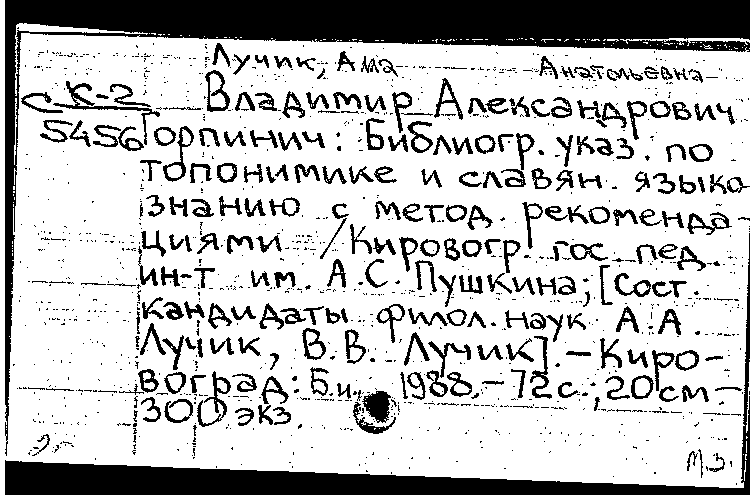 Лучик, Алла Анатольевна
К-2 Владимир Александрович
5456 Горпинич: Библиогр. указ. по
топонимике и славян. языко
знанию с метод. рекоменда-
циями /Кировогр. гос. пед.
ин-т им. А.С. Пушкина; [Сост.
кандидаты филол. наук А.А.
Лучик, В.В. Лучик]. – Киро-
воград: Б.и., 1988. – 72 с.; 20 см. –
300 экз.
М.З.